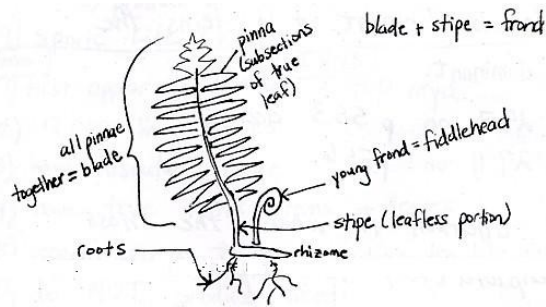 blade + stipe = frond
pinna
(subsections
of true
leaf)
all pinnae
together = blade
young frond = fiddlehead
stipe (leafless portion)
roots
rhizome